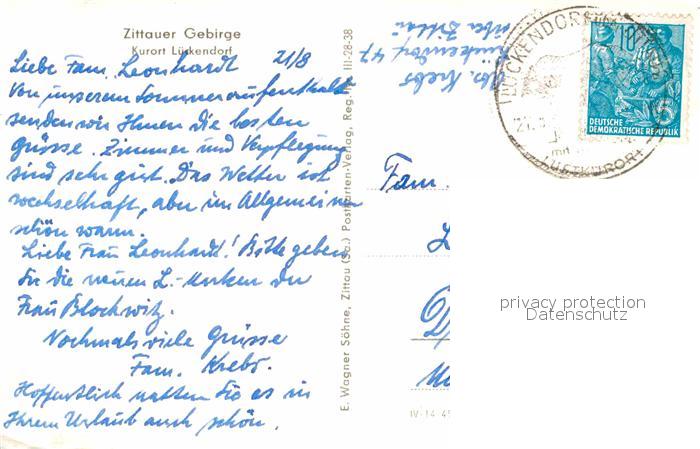 Zittauer Gebirge
Kurort Lückendorf
Liebe Fam. Leonhardt 21/8
Von unserem Sommeraufenthalt
senden wir Ihnen die besten
Grüsse. Zimmer und Verpflegung
sind sehr gut. Das Wetter ist
wechselhaft, aber im Allgemeinen
schön warm.
Liebe Frau Leonhardt! Bitte geben
Sie die neuen L.-Marken an
Frau Blochwitz.
Nochmals viele Grüsse
Fam. Krebs.
Hoffentlich hatten Sie es in
Ihrem Urlaub auch schön.
E. Wagner Söhne, Zittau (Sa.) Postkarten-Verlag, Reg. III-28-38
Abs. Krebs
Lückendorf 47
über Zittau
LÜCKENDORF
LUFTKURORT
10
5
DEUTSCHE
DEMOKRATISCHE REPUBLIK
Fam.
IV-14-45
privacy protection
Datenschutz